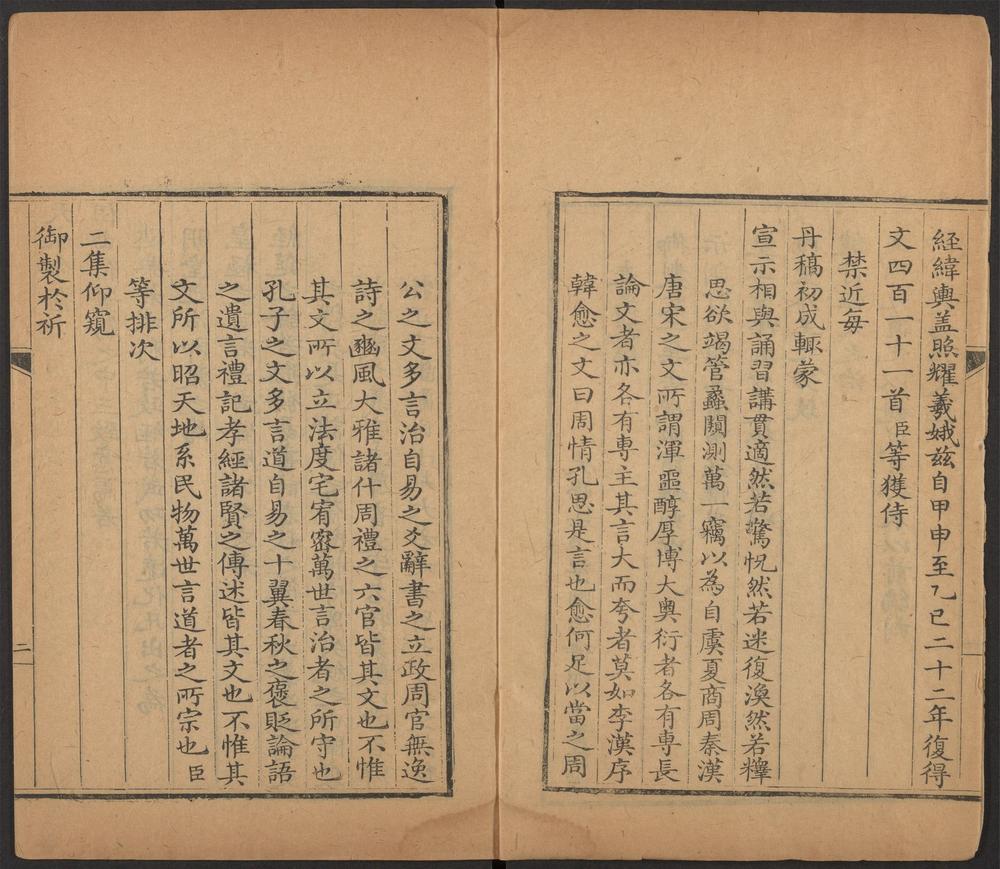 経緯輿盖照耀羲娥兹自甲申至乙巳二十二年復得
文四百一十一首臣等獲侍
禁近每
丹稿初成輒蒙
宣示相與誦習講貫適然若驚怳然若迷復渙然若釋
思欲竭管蠡闚測萬一竊以為自虞夏商周秦漢
唐宋之文所謂渾噩醇厚博大奥衍者各有専長
論文者亦各有専主其言大而夸者莫如李漢序
韓愈之文曰周情孔思是言也愈何足以當之周
公之文多言治自易之爻辭書之立政周官無逸
詩之豳風大雅諸什周禮之六官皆其文也不惟
其文所以立法度宅宥密萬世言治者之所守也
孔子之文多言道自易之十翼春秋之褒貶論語
之遺言禮記孝經諸賢之傳述皆其文也不惟其
文所以昭天地系民物萬世言道者之所宗也臣
等排次
二集仰窺
御製於祈
二